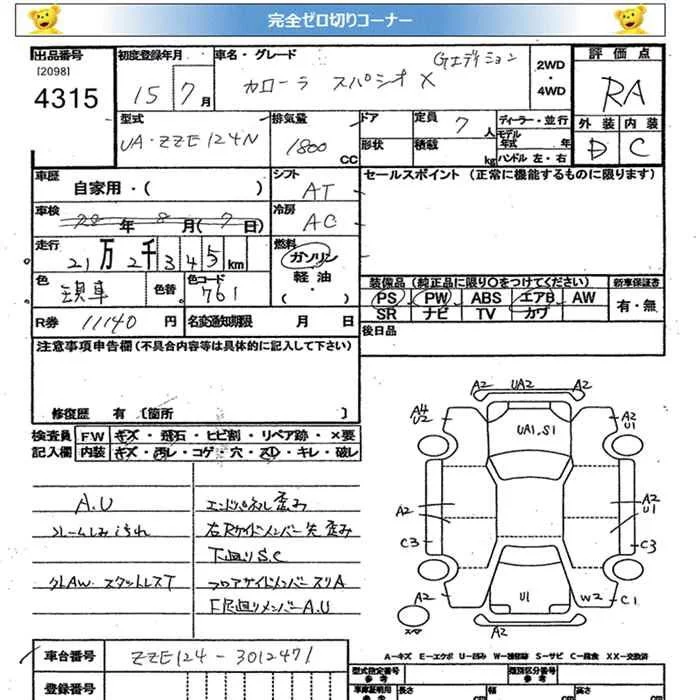 完全ゼロ切りコーナー
出品番号
[2098]
4315
初度登録年月
15 7 月
車名・グレード
カローラ スパシオ X
Gエディション
2WD
・
4WD
評価点
RA
外装 内装
D C
型式
UA・ZZE124N
排気量
1800 CC
ドア
形状
定員 7 人
積載 kg
ディーラー・並行
モデル
年式 年
ハンドル 左・右
車歴
自家用・( )
シフト
AT
セールスポイント (正常に機能するものに限ります)
車検
22 年 8 月( 7 日)
冷房
AC
走行
21 万 2 千 3 4 5 km
燃料
ガソリン
軽油
・
( )
色
色替
色コード
761
装備品 (純正品に限り○をつけてください)
新車保証書
PS PW ABS エアB AW
SR ナビ TV カワ
有・無
R券 11140 円
名変通知期限 月 日
後日品
注意事項申告欄 (不具合内容等は具体的に記入して下さい)
修復歴 有 〔箇所 〕
検査員
記入欄
FW キズ・飛石・ヒビ割・リペア跡・×要
内装 キズ・汚レ・コゲ・穴・スレ・キレ・破レ
A.U
エンドパネル歪み
右Rサイドメンバー先 歪み
下廻りS.C
クLAW. スタットレスT
フロアサイドメンバースリA
F足廻りメンバーA.U
A2 UA2 A2
A4
U2
UA1.S1
A2
U1
A2
A2
U1
C3
C3
A2
U1
W2
C1
スペア
A2
A2
A−キズ E−エクボ U−凹み W−補修跡 S−サビ C−腐食 XX−交換済
車台番号
ZZE124-3012471
型式指定番号
参考
類別区分番号
参考
登録番号
車庫証明用
参考
長さ cm
幅 cm
高さ cm